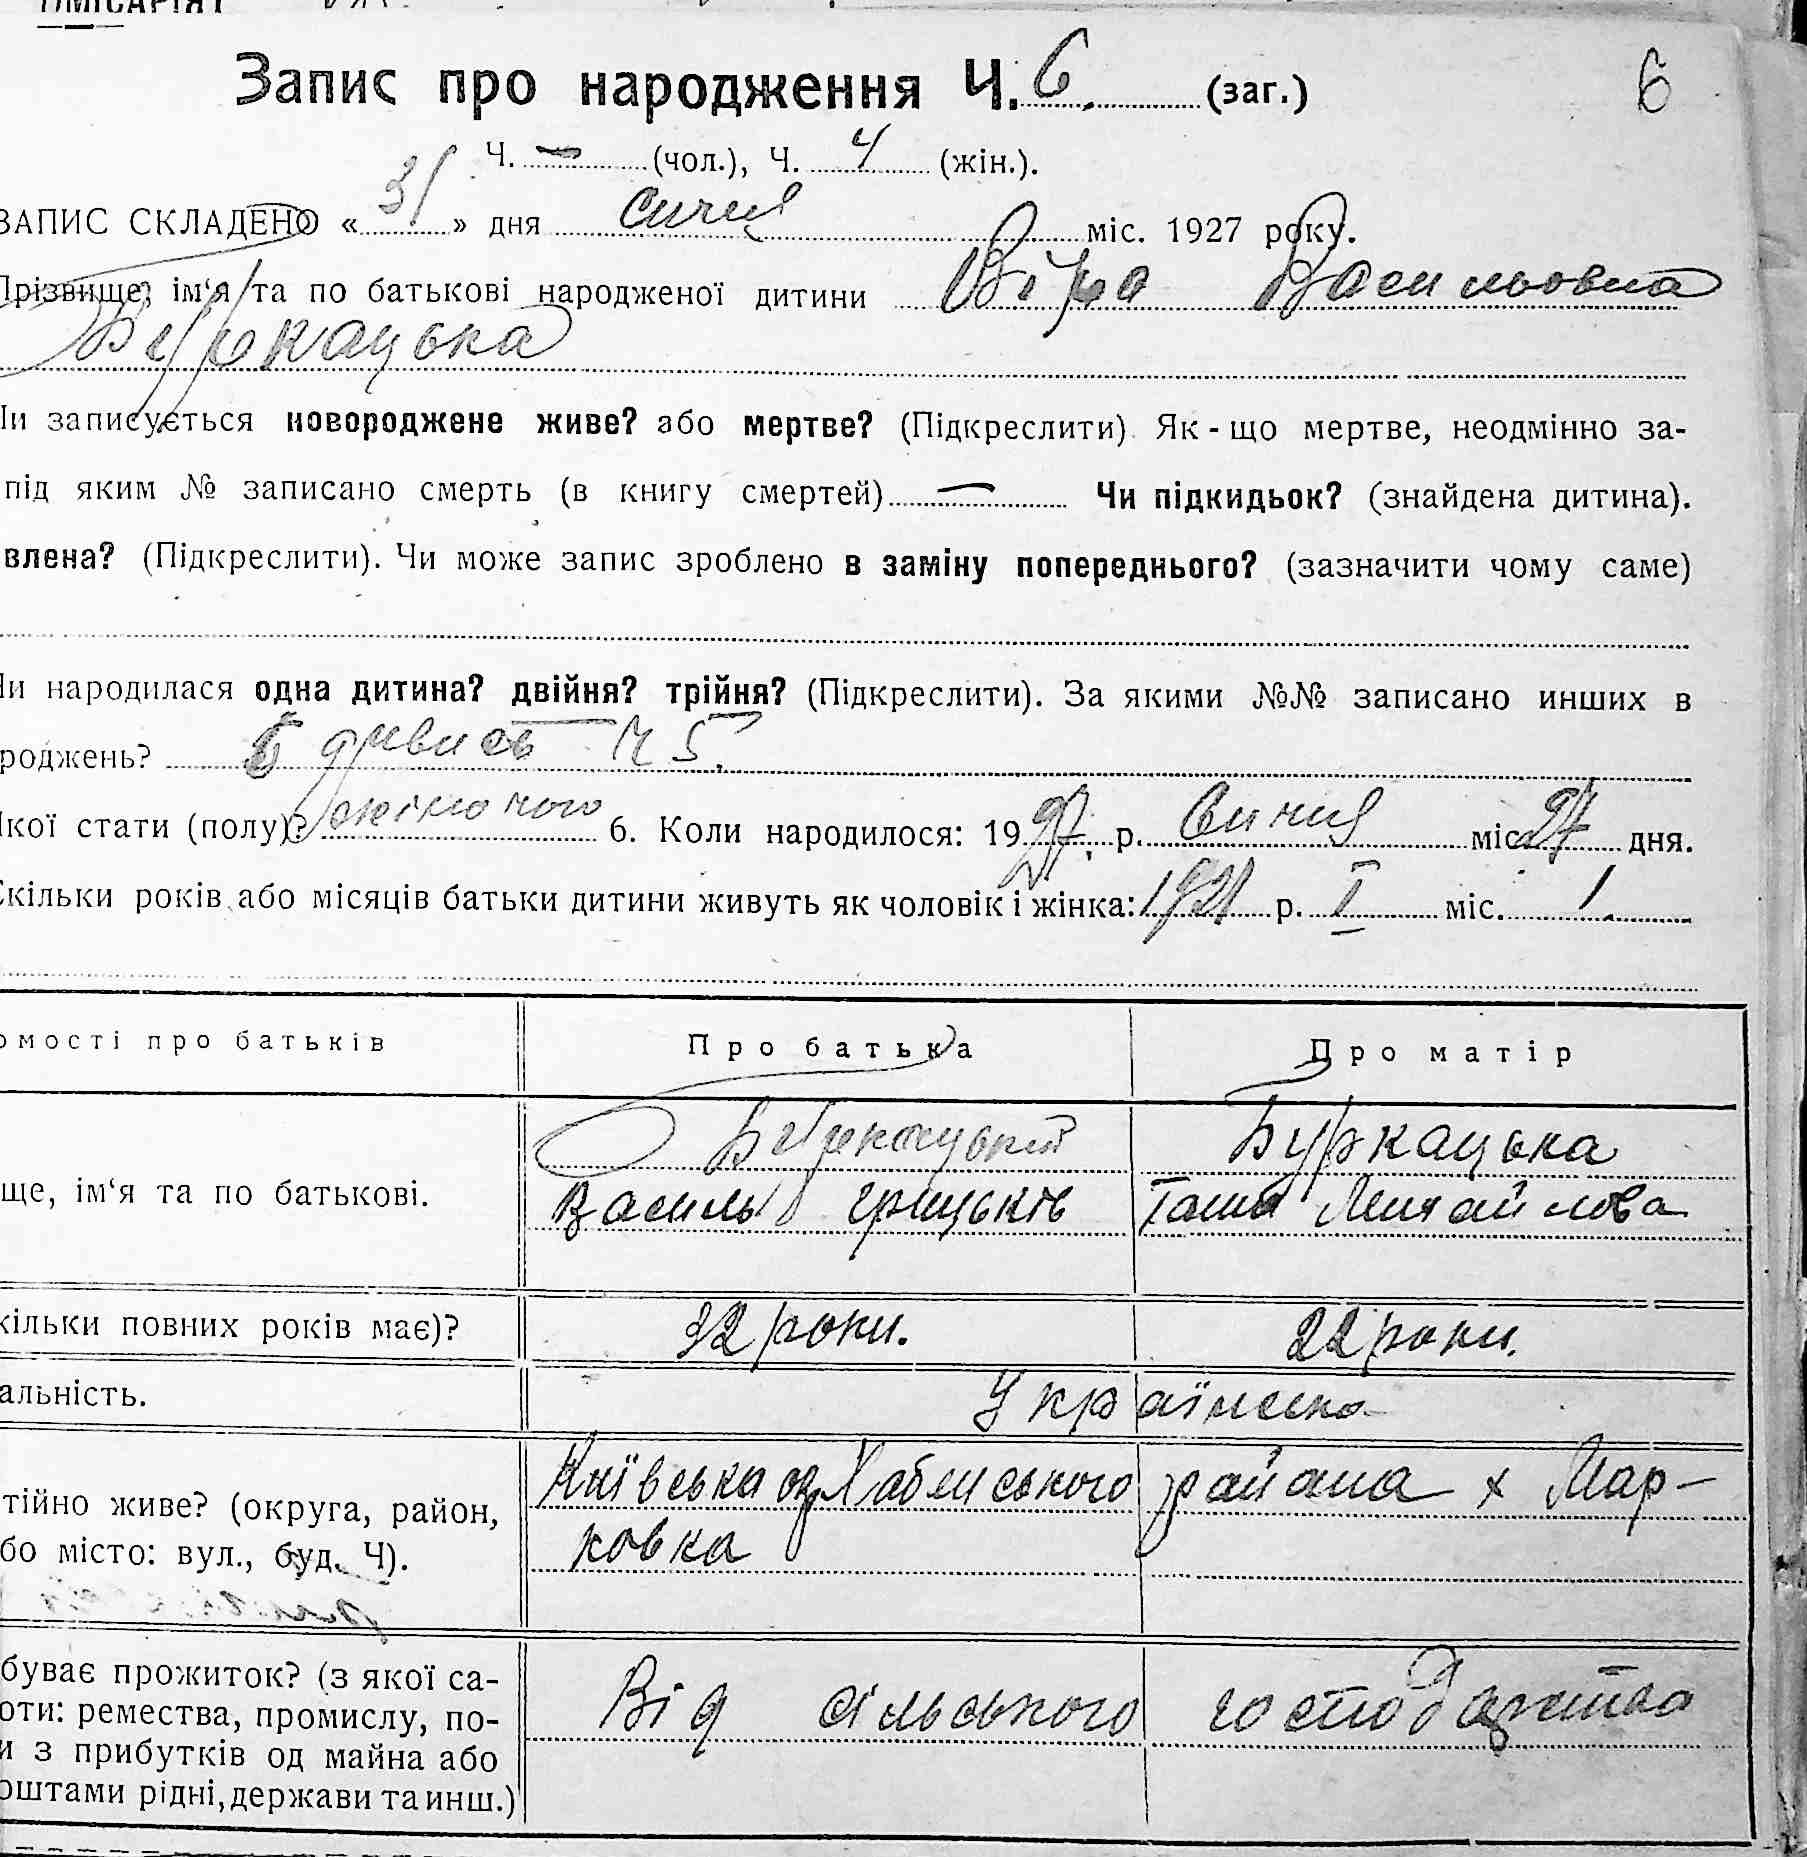 Запис про народження Ч. 6. (заг.) 6
Ч. — (чол.), Ч. 4 (жін.).
ЗАПИС СКЛАДЕНО « 31 » дня січня міс. 1927 року.
Прізвище, ім‘я та по батькові народженої дитини Віра Васильовна
Буркацька
Чи записується новороджене живе? або мертве? (Підкреслити) Як-що мертве, неодмінно за-
під яким № записано смерть (в книгу смертей) — Чи підкидьок? (знайдена дитина).
влена? (Підкреслити). Чи може запис зроблено в заміну попереднього? (зазначити чому саме)
Чи народилася одна дитина? двійня? трійня? (Підкреслити). За якими №№ записано инших в
роджень? Ч 5.
Якої стати (полу)? жіночого 6. Коли народилося: 1927 р. Січня міс 27 дня.
Скільки років або місяців батьки дитини живуть як чоловік і жінка: 1921 р. I міс. 1.
омості про батьків Про батька Про матір
Буркацький Буркацька
ще, ім‘я та по батькові. Василь Грицьків Ганна Михайлова
кільки повних років має)? 32 роки. 22 роки.
альність. Українська
Київська ок Хабенського района х Мар-
тійно живе? (округа, район,
ковка
бо місто: вул., буд. Ч).
Від сільського господарства
буває прожиток? (з якої са-
оти: ремества, промислу, по-
и з прибутків од майна або
оштами рідні, держави та инш.)